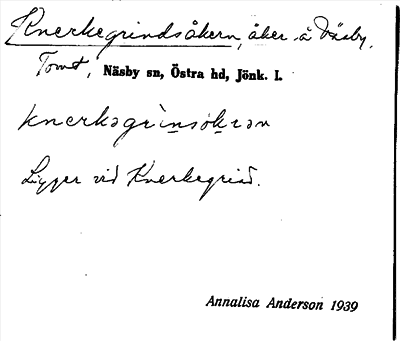 Knerkegrindsåkern, åker å Näsby,
Tomt, Näsby sn, Östra hd, Jönk. l.
knerkəgrìnsòkrən
Ligger vid Knerkegrind.
Annalisa Anderson 1939